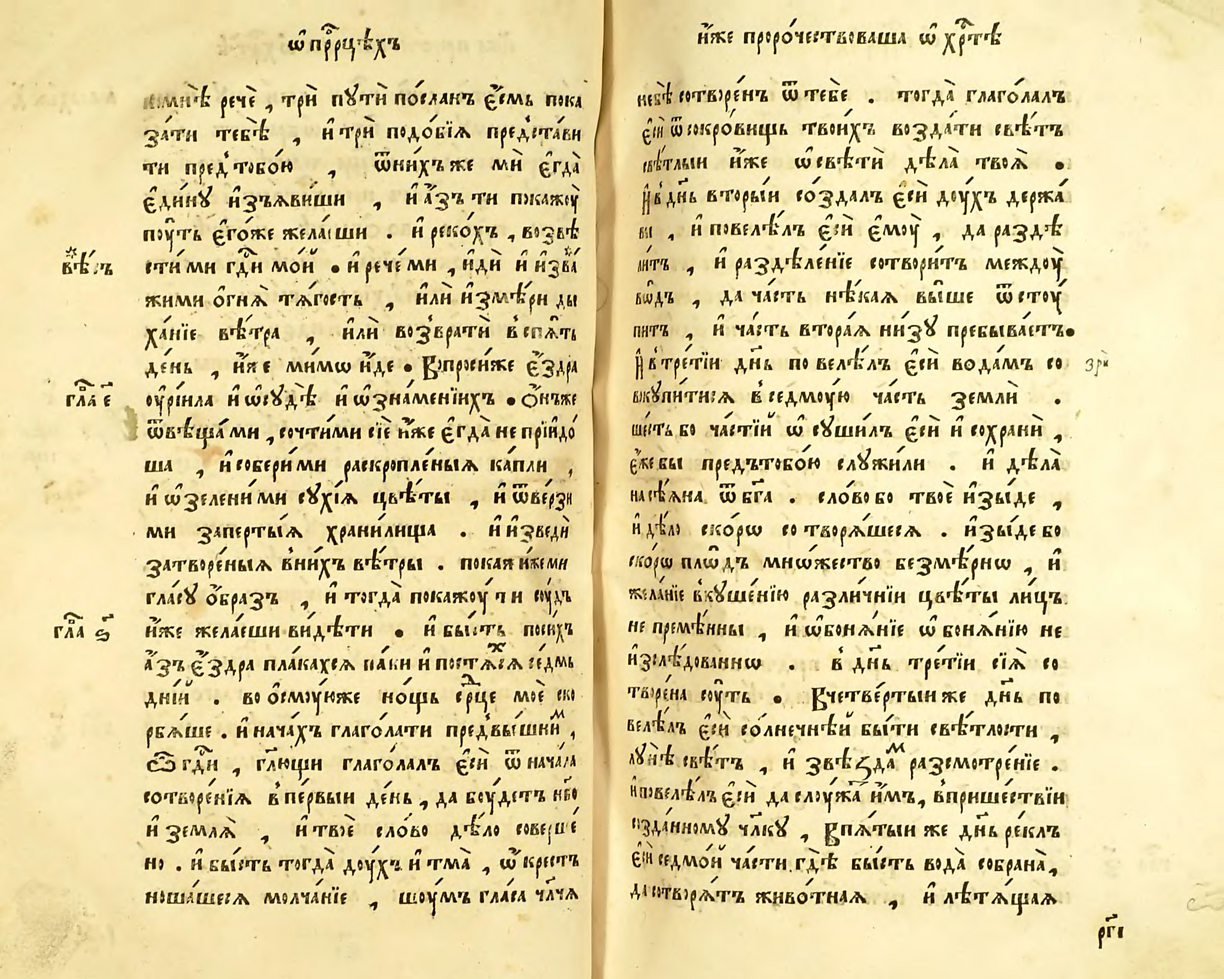 ѡ҆ прⷪ҇рцѣхъ
мнѣ̀ речѐ , трѝ пꙋтѝ по́сланъ є҆́смь пока
за́ти тебѣ̀ , и҆ трѝ подо́бїѧ предста́ви
ти пред̾тобо́ю , ѿни́хъже мѝ є҆гда̀
є҆ди́нꙋ и҆з̾ѧви́ши , и҆ а҆́зъ ти покажоу̀
поу́ть є҆го́же жела́еши . и҆ реко́хъ , возвѣ
сти́ми гдⷭ҇и мо́й . и҆ рече́ми , и҆дѝ и҆ и҆зва́
жими ѻ҆гнѧ̀ тѧ́гость , и҆лѝ и҆змѣ́ри ды
ха́нїе вѣ́тра , и҆лѝ возвратѝ вспѧ́ть
де́нь , и҆́же мимѡ и҆́де . Впроси́же є҆́здра
оу҆рїила и҆ ѡ҆сꙋдѣ̀ и҆ ѡ҆знаменїихъ . Ѻ҆́нъже
ѿвѣща́ми , сочти́ми сїѐ и҆́же є҆гда̀ не прїидо́
ша , и҆ собери́ми раскропле́ныѧ ка́пли ,
и҆ ѡ҆зелени́ми сꙋхі́ѧ цвѣ́ты , и҆ ѿве́рзи
ми запе́ртыѧ храни́лища . и҆ и҆зведѝ
затворе́ныѧ вни́хъ вѣ́тры . покажи́ми
гла́сꙋ ѻ҆́бразъ , и҆ тогда̀ покажоу́ ти соу́дъ
и҆́же жела́еши ви́дѣти . и҆ бы́сть по си́хъ
а҆́зъ є҆́здра пла́кахсѧ па́ки и҆ постѧ́хсѧ се́дмь
дні́й . во ѻ҆смоу́юже но́щь срⷣце моѐ ско
рбѧ́ше . и҆ нача́хъ глаго́лати предвы́шнимъ ,
Ѽ гдⷭ҇и , глю́щи глаго́лалъ є҆сѝ ѿ нача́ла
сотворе́нїѧ в пе́рвыи де́нь , да боу́детъ нбо
и҆ землѧ̀ , и҆ твоѐ сло́во дѣ́ло соверше
но . и҆ бы́сть тогда̀ доу́хъ и҆ тма̀ , ѡ҆́крестъ
ноша́шесѧ молча́нїе , шоу́мъ гла́са чл҃чѧ
вѣ́съ
гла̀ є҃
гла̀ ѕ҃
и҆́же проро́чествоваша ѡ҆ хрⷭ҇тѣ
небѣ̀ сотворе́нъ ѿ тебе . тогда̀ глаго́лалъ
є҆сѝ ѿ сокро́вищь твои́хъ возда́ти свѣ́тъ
свѣ́тлыи и҆́же ѡ҆свѣтѝ дѣла̀ твоѧ̀ .
И҆ в дн҃ь вторы́и со́здалъ є҆сѝ доу́хъ держа́
вы , и҆ повелѣ́лъ є҆сѝ є҆моу̀ , да раздѣ
ли́тъ , и҆ раздѣле́нїе сотвори́тъ междоу̀
во́дъ , да ча́сть нѣ́каѧ вы́ше ѿстоу́
питъ , и҆ ча́сть втора́ѧ ни́зꙋ пребыва́етъ.
И҆ в тре́тїи дн҃ь повелѣ́лъ є҆сѝ вода́мъ со
вкꙋпи́тисѧ в седмоу́ю ча́сть землѝ .
ше́сть бо часті́й ѡ҆сꙋши́лъ є҆сѝ и҆ сохранѝ ,
є҆́же бы пред̾тобо́ю слꙋжи́ли . и҆ дѣла̀
насѣ́ѧна ѿ бг҃а . сло́во бо твоѐ и҆зы́де ,
и҆ дѣ́ло ско́рѡ сотворѧ́шесѧ . и҆зы́де бо
ско́рѡ пло́дъ мно́жество безмѣ́рнѡ , и҆
жела́нїе вкꙋше́нїю разли́чнїи цвѣ́ты ли́цъ
не премѣ́нны , и҆ ѡ҆боня́нїе ѡ҆боня́нїю не
и҆зслѣ́дованнѡ . в дн҃ь тре́тїи сїѧ̀ со
творе́на соу́ть . В четве́ртыи же дн҃ь по
велѣ́лъ є҆сѝ со́лнечнѣй бы́ти свѣ́тлости ,
лꙋнѣ̀ свѣ́тъ , и҆ звѣзда́мъ разсмотре́нїе .
и҆ повелѣ́лъ є҆сѝ да слоу́жатъ и҆́мъ, в прише́ствїи
со́зданномꙋ чл҃кꙋ , В пѧ́тыи же дн҃ь ре́клъ
є҆сѝ седмо́й ча́сти, гдѣ̀ бы́сть вода̀ собрана̀,
да сотворѧ́тъ живо́тнаѧ , и҆ лѣта́ющаѧ
зрѝ